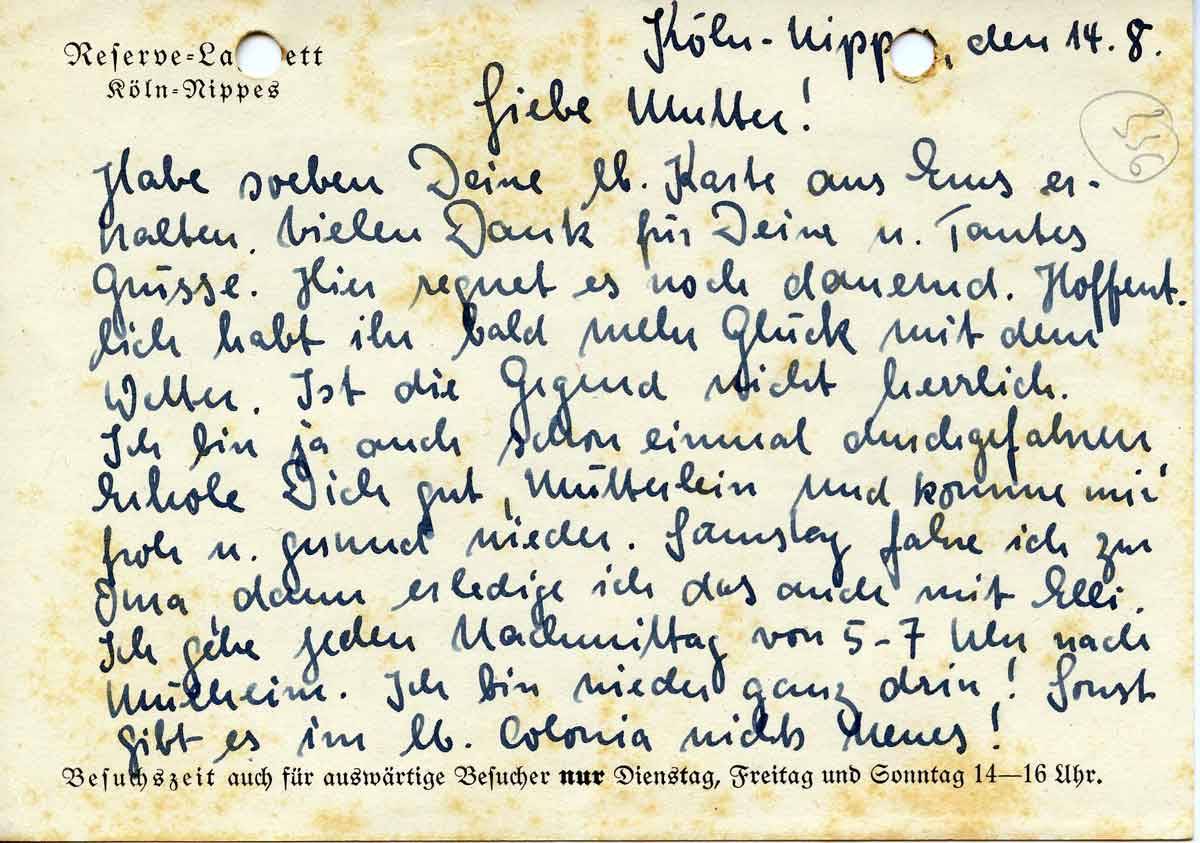 Reserve-La ett
Köln-Nippes
Köln-Nippes, den 14. 8.
Liebe Mutter!
Habe soeben Deine lb. Karte aus Ems er-
halten. Vielen Dank für Deine u. Tantes
Grüsse. Hier regnet es noch dauernd. Hoffent-
lich habt ihr bald mehr Glück mit dem
Wetter. Ist die Gegend nicht herrlich.
Ich bin ja auch schon einmal durchgefahren
Erhole Dich gut, Mütterlein und komme mir
froh u. gesund wieder. Samstag fahre ich zur
Oma, dann erledige ich das auch mit Elli.
Ich gehe jeden Nachmittag von 5-7 Uhr nach
Mülheim. Ich bin wieder ganz drin! Sonst
gibt es im lb. Colonia nichts Neues!
Besuchszeit auch für auswärtige Besucher nur Dienstag, Freitag und Sonntag 14—16 Uhr.